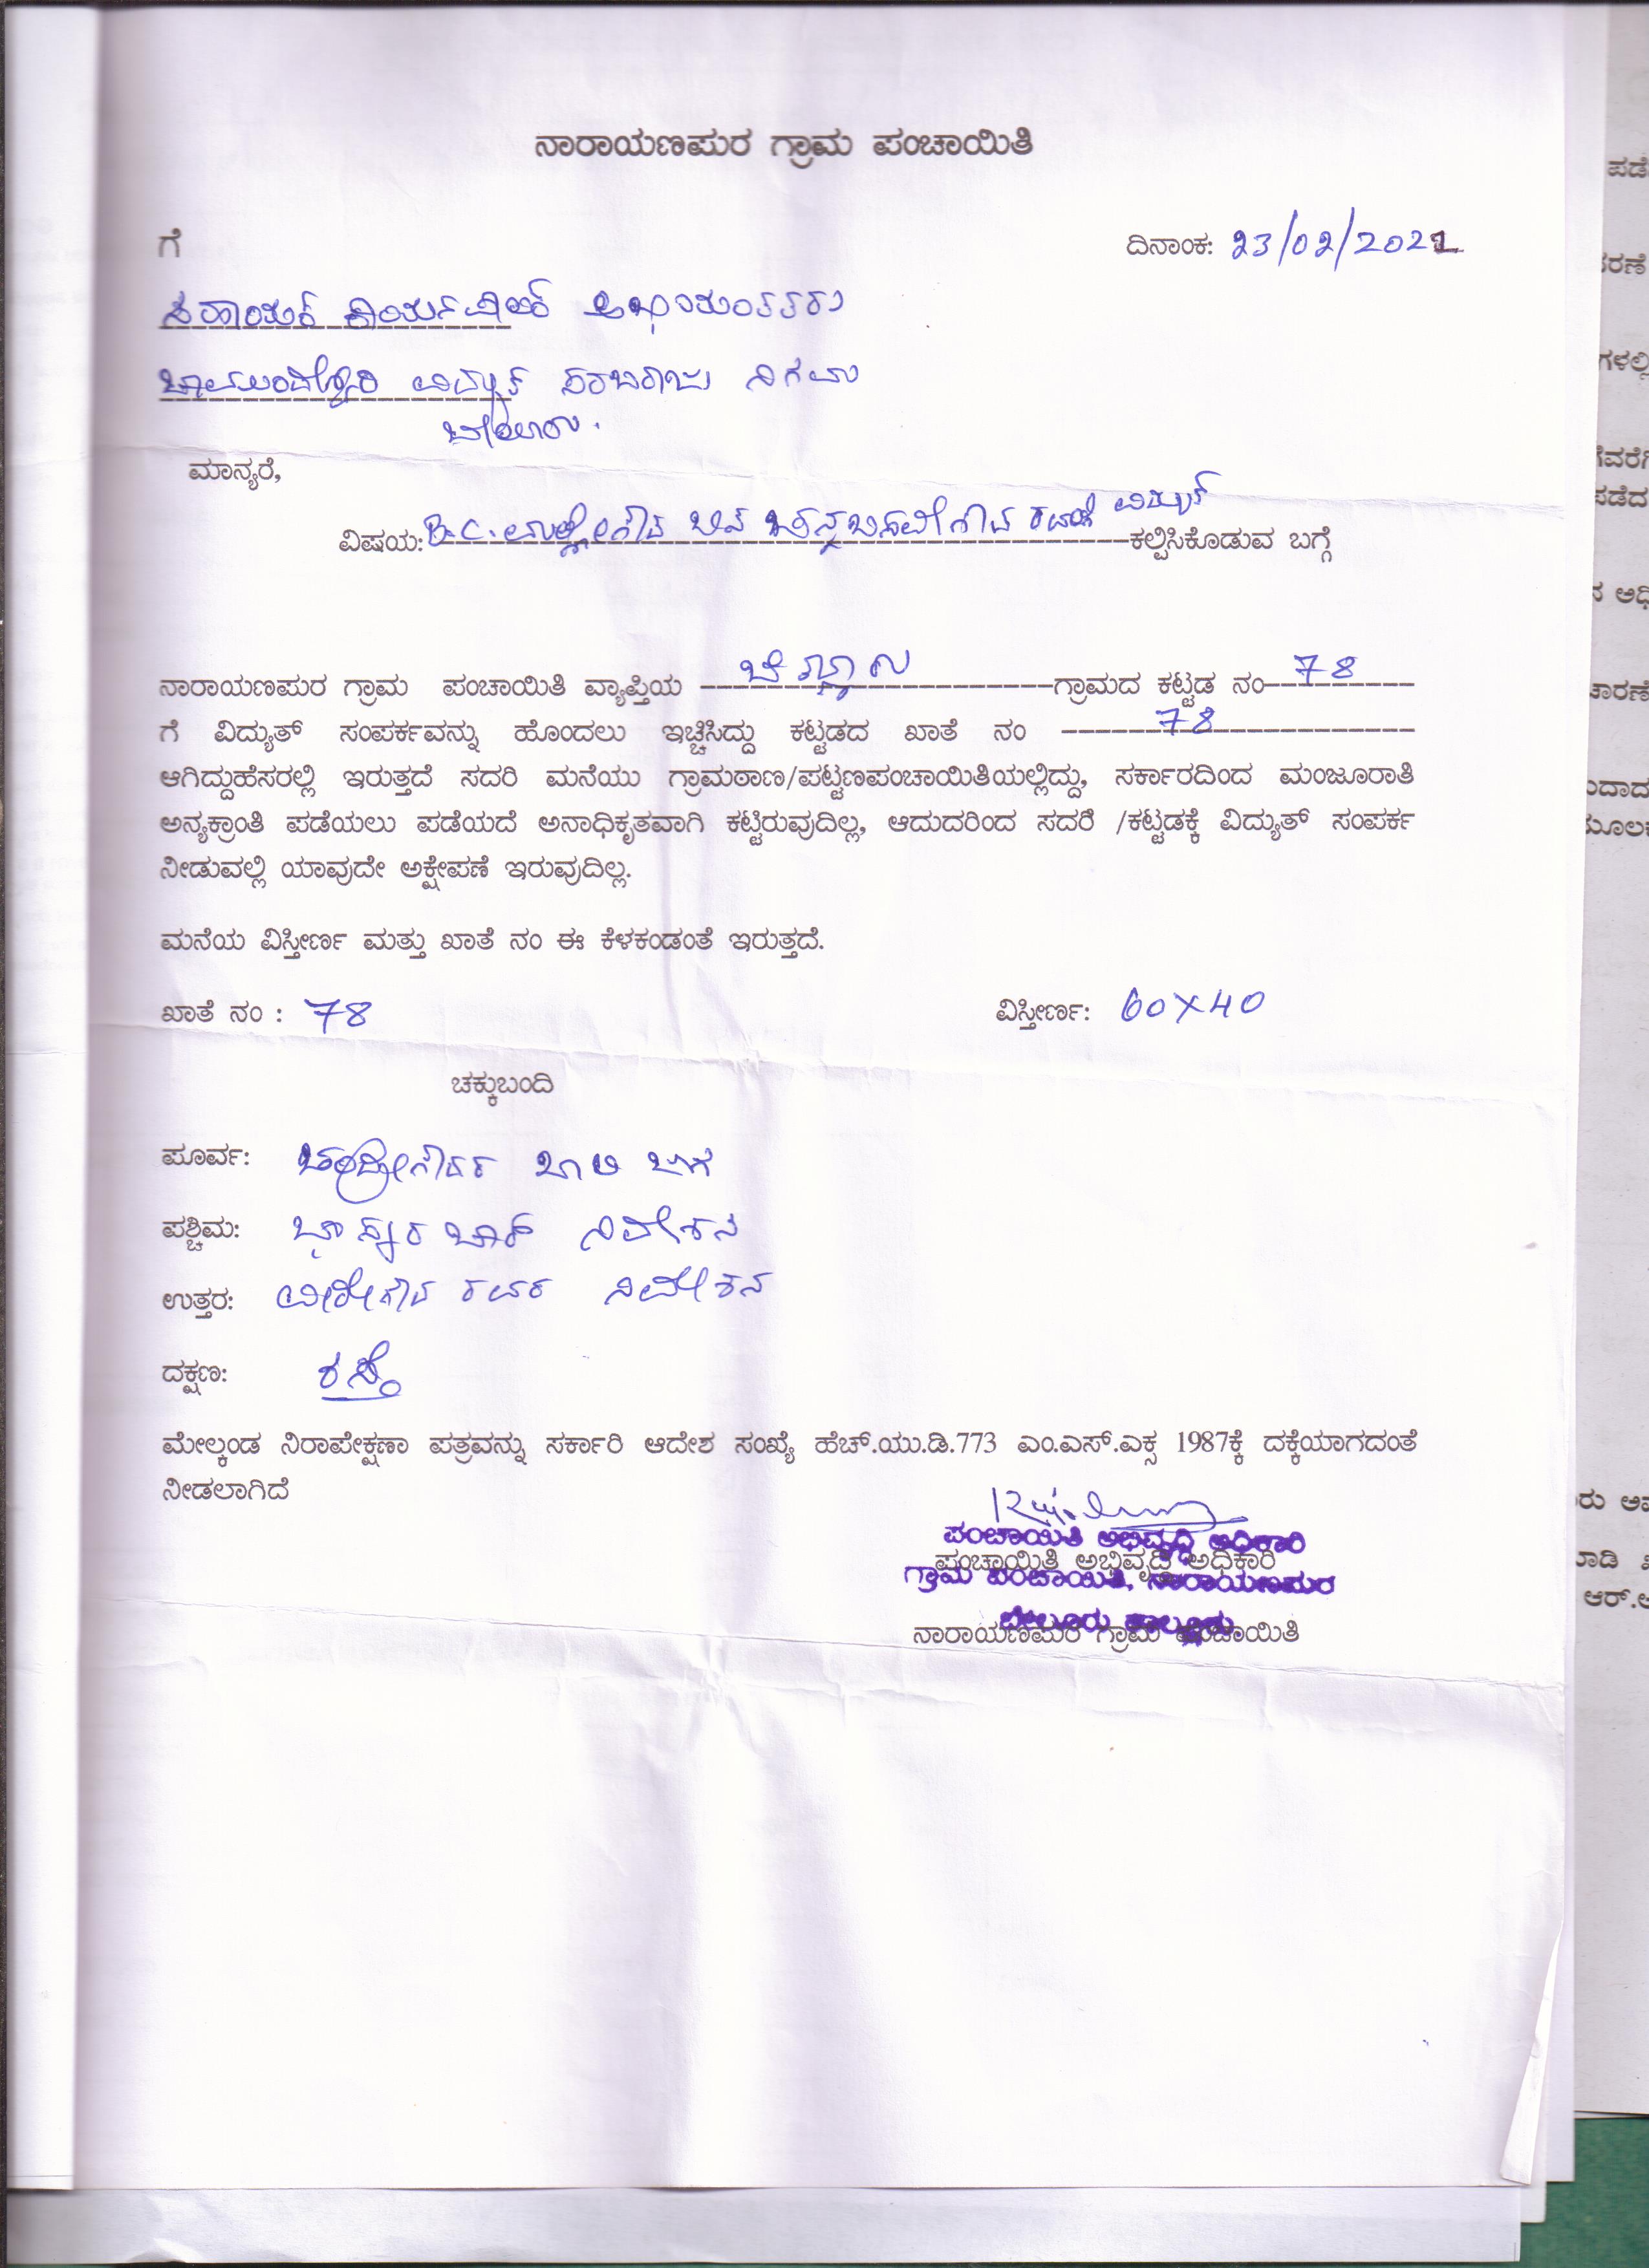 ನಾರಾಯಣಪುರ ಗ್ರಾಮ ಪಂಚಾಯಿತಿ
ಗೆ
ದಿನಾಂಕ: 23/02/2021
ಸಹಾಯಕ ಕಾರ್ಯಪಾಲಕ ಅಭಿಯಂತರರು
ಚಾಮುಂಡೇಶ್ವರಿ ವಿದ್ಯುತ್ ಸರಬರಾಜು ನಿಗಮ
ಬೇಲೂರು.
ಮಾನ್ಯರೆ,
ವಿಷಯ: B.C. ಮಲ್ಲೇಗೌಡ ಬಿನ್ ವಿದ್ಯುತ್ ಕಲ್ಪಿಸಿಕೊಡುವ ಬಗ್ಗೆ
ನಾರಾಯಣಪುರ ಗ್ರಾಮ ಪಂಚಾಯಿತಿ ವ್ಯಾಪ್ತಿಯ ಗ್ರಾಮದ ಕಟ್ಟಡ ನಂ 78
ಗೆ ವಿದ್ಯುತ್ ಸಂಪರ್ಕವನ್ನು ಹೊಂದಲು ಇಚ್ಚಿಸಿದ್ದು ಕಟ್ಟಡದ ಖಾತೆ ನಂ 78
ಆಗಿದ್ದುಹೆಸರಲ್ಲಿ ಇರುತ್ತದೆ ಸದರಿ ಮನೆಯು ಗ್ರಾಮಠಾಣ/ಪಟ್ಟಣಪಂಚಾಯಿತಿಯಲ್ಲಿದ್ದು, ಸರ್ಕಾರದಿಂದ ಮಂಜೂರಾತಿ
ಅನ್ಯಕ್ರಾಂತಿ ಪಡೆಯಲು ಪಡೆಯದೆ ಅನಾಧಿಕೃತವಾಗಿ ಕಟ್ಟಿರುವುದಿಲ್ಲ, ಆದುದರಿಂದ ಸದರಿ /ಕಟ್ಟಡಕ್ಕೆ ವಿದ್ಯುತ್ ಸಂಪರ್ಕ
ನೀಡುವಲ್ಲಿ ಯಾವುದೇ ಅಕ್ಷೇಪಣೆ ಇರುವುದಿಲ್ಲ.
ಮನೆಯ ವಿಸ್ತೀರ್ಣ ಮತ್ತು ಖಾತೆ ನಂ ಈ ಕೆಳಕಂಡಂತೆ ಇರುತ್ತದೆ.
ಖಾತೆ ನಂ : 78
ವಿಸ್ತೀರ್ಣ: 60×40
ಚಕ್ಕುಬಂದಿ
ಪೂರ್ವ: ಚಂದ್ರೇಗೌಡರ ಖಾಲಿ ಜಾಗ
ಪಶ್ಚಿಮ: ನಿವೇಶನ
ಉತ್ತರ: ವೀರೇಗೌಡ ರವರ ನಿವೇಶನ
ದಕ್ಷಣ: ರಸ್ತೆ
ಮೇಲ್ಕಂಡ ನಿರಾಪೇಕ್ಷಣಾ ಪತ್ರವನ್ನು ಸರ್ಕಾರಿ ಆದೇಶ ಸಂಖ್ಯೆ ಹೆಚ್.ಯು.ಡಿ.773 ಎಂ.ಎಸ್.ಎಕ್ಸ 1987ಕ್ಕೆ ದಕ್ಕೆಯಾಗದಂತೆ
ನೀಡಲಾಗಿದೆ
ಪಂಚಾಯಿತಿ ಅಭಿವೃದ್ಧಿ ಅಧಿಕಾರಿ
ಪಂಚಾಯಿತಿ ಅಭಿವೃದ್ಧಿ ಅಧಿಕಾರಿ
ಗ್ರಾಮ ಪಂಚಾಯಿತಿ, ನಾರಾಯಣಪುರ
ಬೇಲೂರು ತಾಲ್ಲೂಕು
ನಾರಾಯಣಪುರ ಗ್ರಾಮ ಪಂಚಾಯಿತಿ